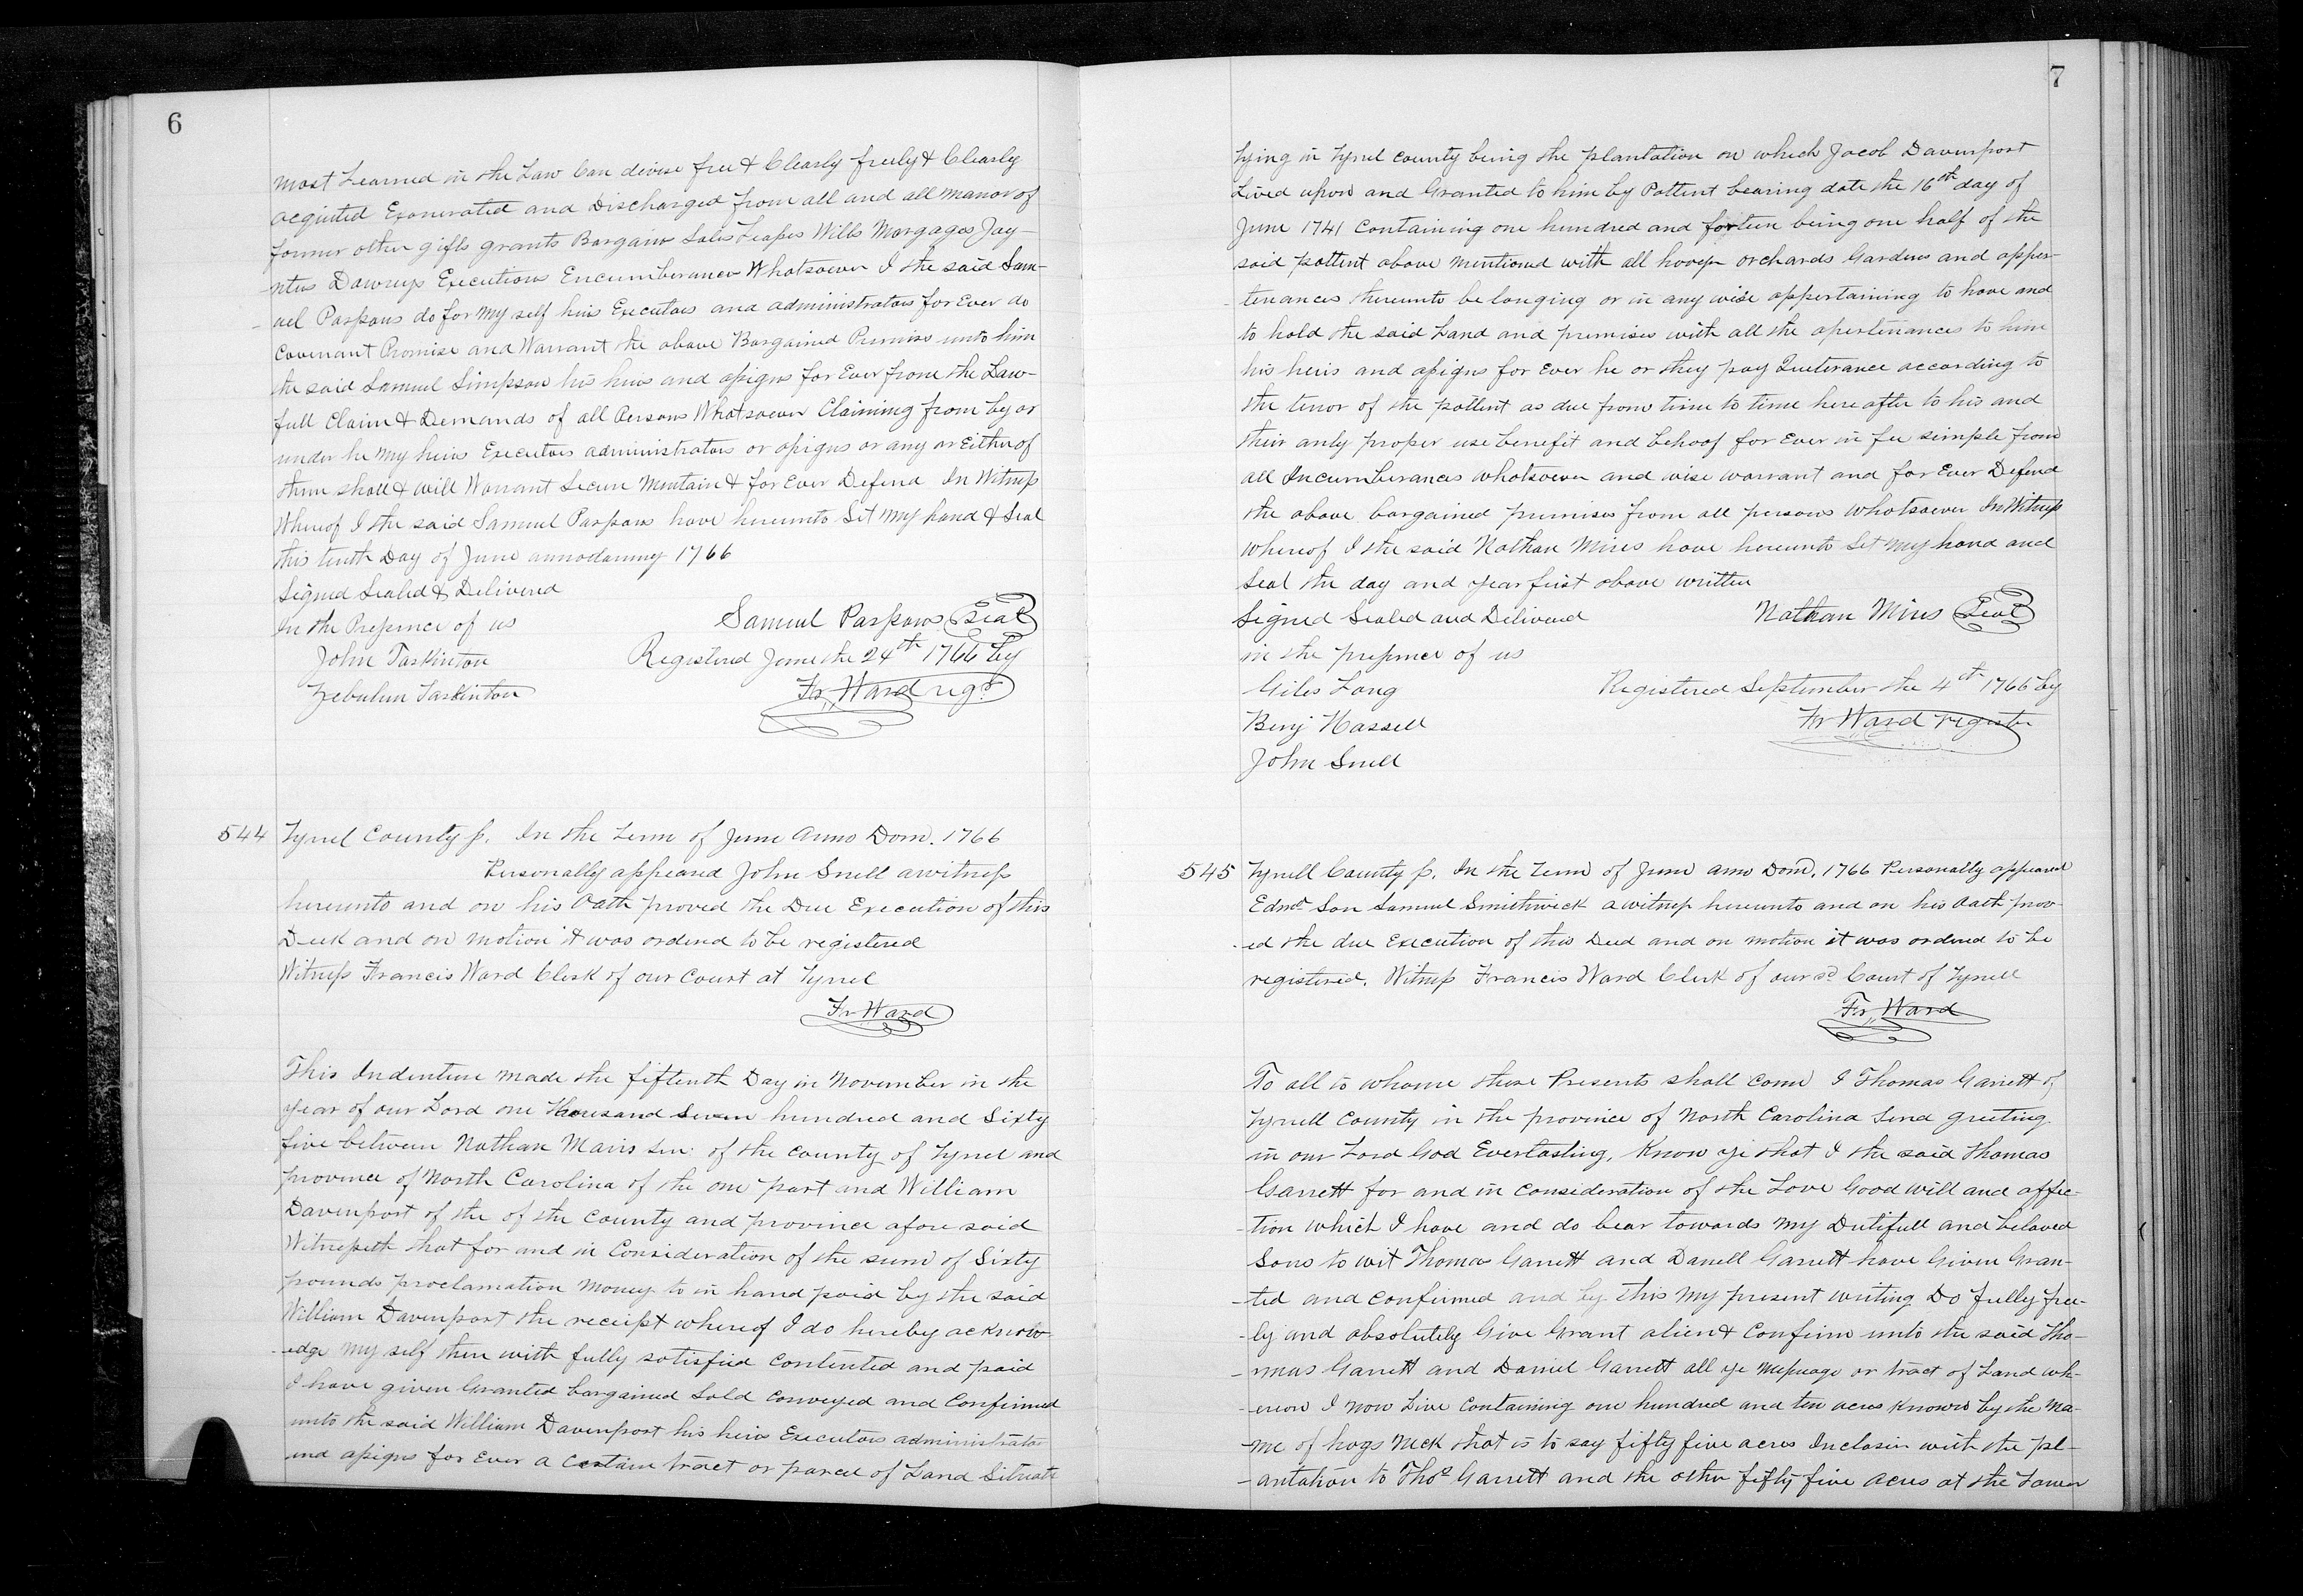 6
most Learned in the Law Can devise free & Clearly freely & Clearly
acquited Exonerated and Discharged from all and all manor of
former other gifts grants Bargains Sales Leases Wills Morgages Joy-
-ntus Dowrys Executions Encumberances Whatsoever I the said Sam-
-uel Parsons do for my self heirs Executors and administrators for Ever do
Covenant Promise and Warrant the above Bargained Premises unto him
the said Samuel Simpson his heirs and assigns for Ever from the Law-
full Claim & Demands of all Persons Whatsoever Claiming from by or
under he my heirs Executors administrators or assigns or any or Either of
them shall & will Warrant Secure Mentain & for Ever Defend In Witness
Whereof I the said Samuel Parsons have hereunto Set my hand & Seal
this tenth Day of June annodanny 1766
Signed Sealed & Delivered
In the Presence of us
Samuel Parsons Seal
John Taskinton
Registered June the 24th 1766 by
Zebulun Taskinton
Fr, Ward regr
544 Tyrrel County ss. In the Term of June Anno Dom. 1766
Personally appeared John Snell a witness
hereunto and on his Oath proved the Due Execution of this
Deek and on motion it was ordered to be registered
Witness Francis Ward Clerk of our Court at Tyrrel
Fr Ward
This Indenture made the fiftenth Day in November in the
year of our Lord one thousand Seven hundred and Sixty
five between Nathan Mairs Sen. of the county of Tyrrel and
province of North Carolina of the one part and William
Davenport of the of the county and province afore said
Witnesseth that for and in Consideration of the sum of Sixty
pounds proclamation money to in hand paid by the said
William Davenport the receipt whereof I do hereby acknow-
-edge my self there with fully satisfied contented and paid
I have given Granted bargained Sold conveyed and Confirmed
unto the said William Davenport his heirs Executors administrators
and assigns for Ever a Certain tract or parcel of Land Situate
7
Lying in Tyrrel county being the plantation on which Jacob Davenport
Lived upon and Granted to him by Pattent bearing date the 16th day of
June 1741 Containing one hundred and forteen being one half of the
said pattent above mentioned with all houses orchards Gardens and apper-
-tenances thereunto belonging or in any wise appertaining to have and
to hold the said Land and premises with all the apertenances to him
his heirs and assigns for Ever he or they pay Quiterance according to
the tenor of the pattent as due from time to time here after to his and
their only proper use benefit and behoof for Ever in fee simple from
all Incumberances whatsoever and wise warrant and for Ever Defend
the above bargained premises from all persons whatsoever In Witness
whereof I the said Nathan Mires have hereunto Set my hand and
Seal the day and year first above written
Signed Sealed and Delivered
Nathan Mires Seal
in the presence of us
Giles Long
Registered September the 4th 1766 by
Benj Hassell
Fr Ward register
John Snell
545 Tyrrell County ss. In the Term of June Anno Dom. 1766 Personally appeared
Edmd Son Samuel Smithwick a witness hereunto and on his Oath prov-
-ed the due Execution of this Deed and on motion it was ordered to be
registered. Witness Francis Ward Clerk of our sd Court of Tyrrell
Fr, Ward
To all to whome these Presents shall come I Thomas Garrett of
Tyrrell County in the province of North Carolina Send greeting
in our Lord God Everlasting, Know ye that I the said Thomas
Garrett for and in consideration of the Love Good will and affec-
-tion which I have and do bear towards my Dutifull and beloved
Sons to wit Thomas Garrett and Daniell Garrett have Given Gran-
-ted and confirmed and by this my present writing Do fully free-
-ly and absolutely Give Grant alien & Confirm unto the said Tho-
-mas Garrett and Daniel Garrett all ye messuage or tract of Land wh-
-ereon I now Live Containing one hundred and ten acres known by the Na-
-me of hogs Neck that is to say fifty five acres Inclosin with the pl-
-antation to Thos Garrett and the other fifty five acres at the Lower